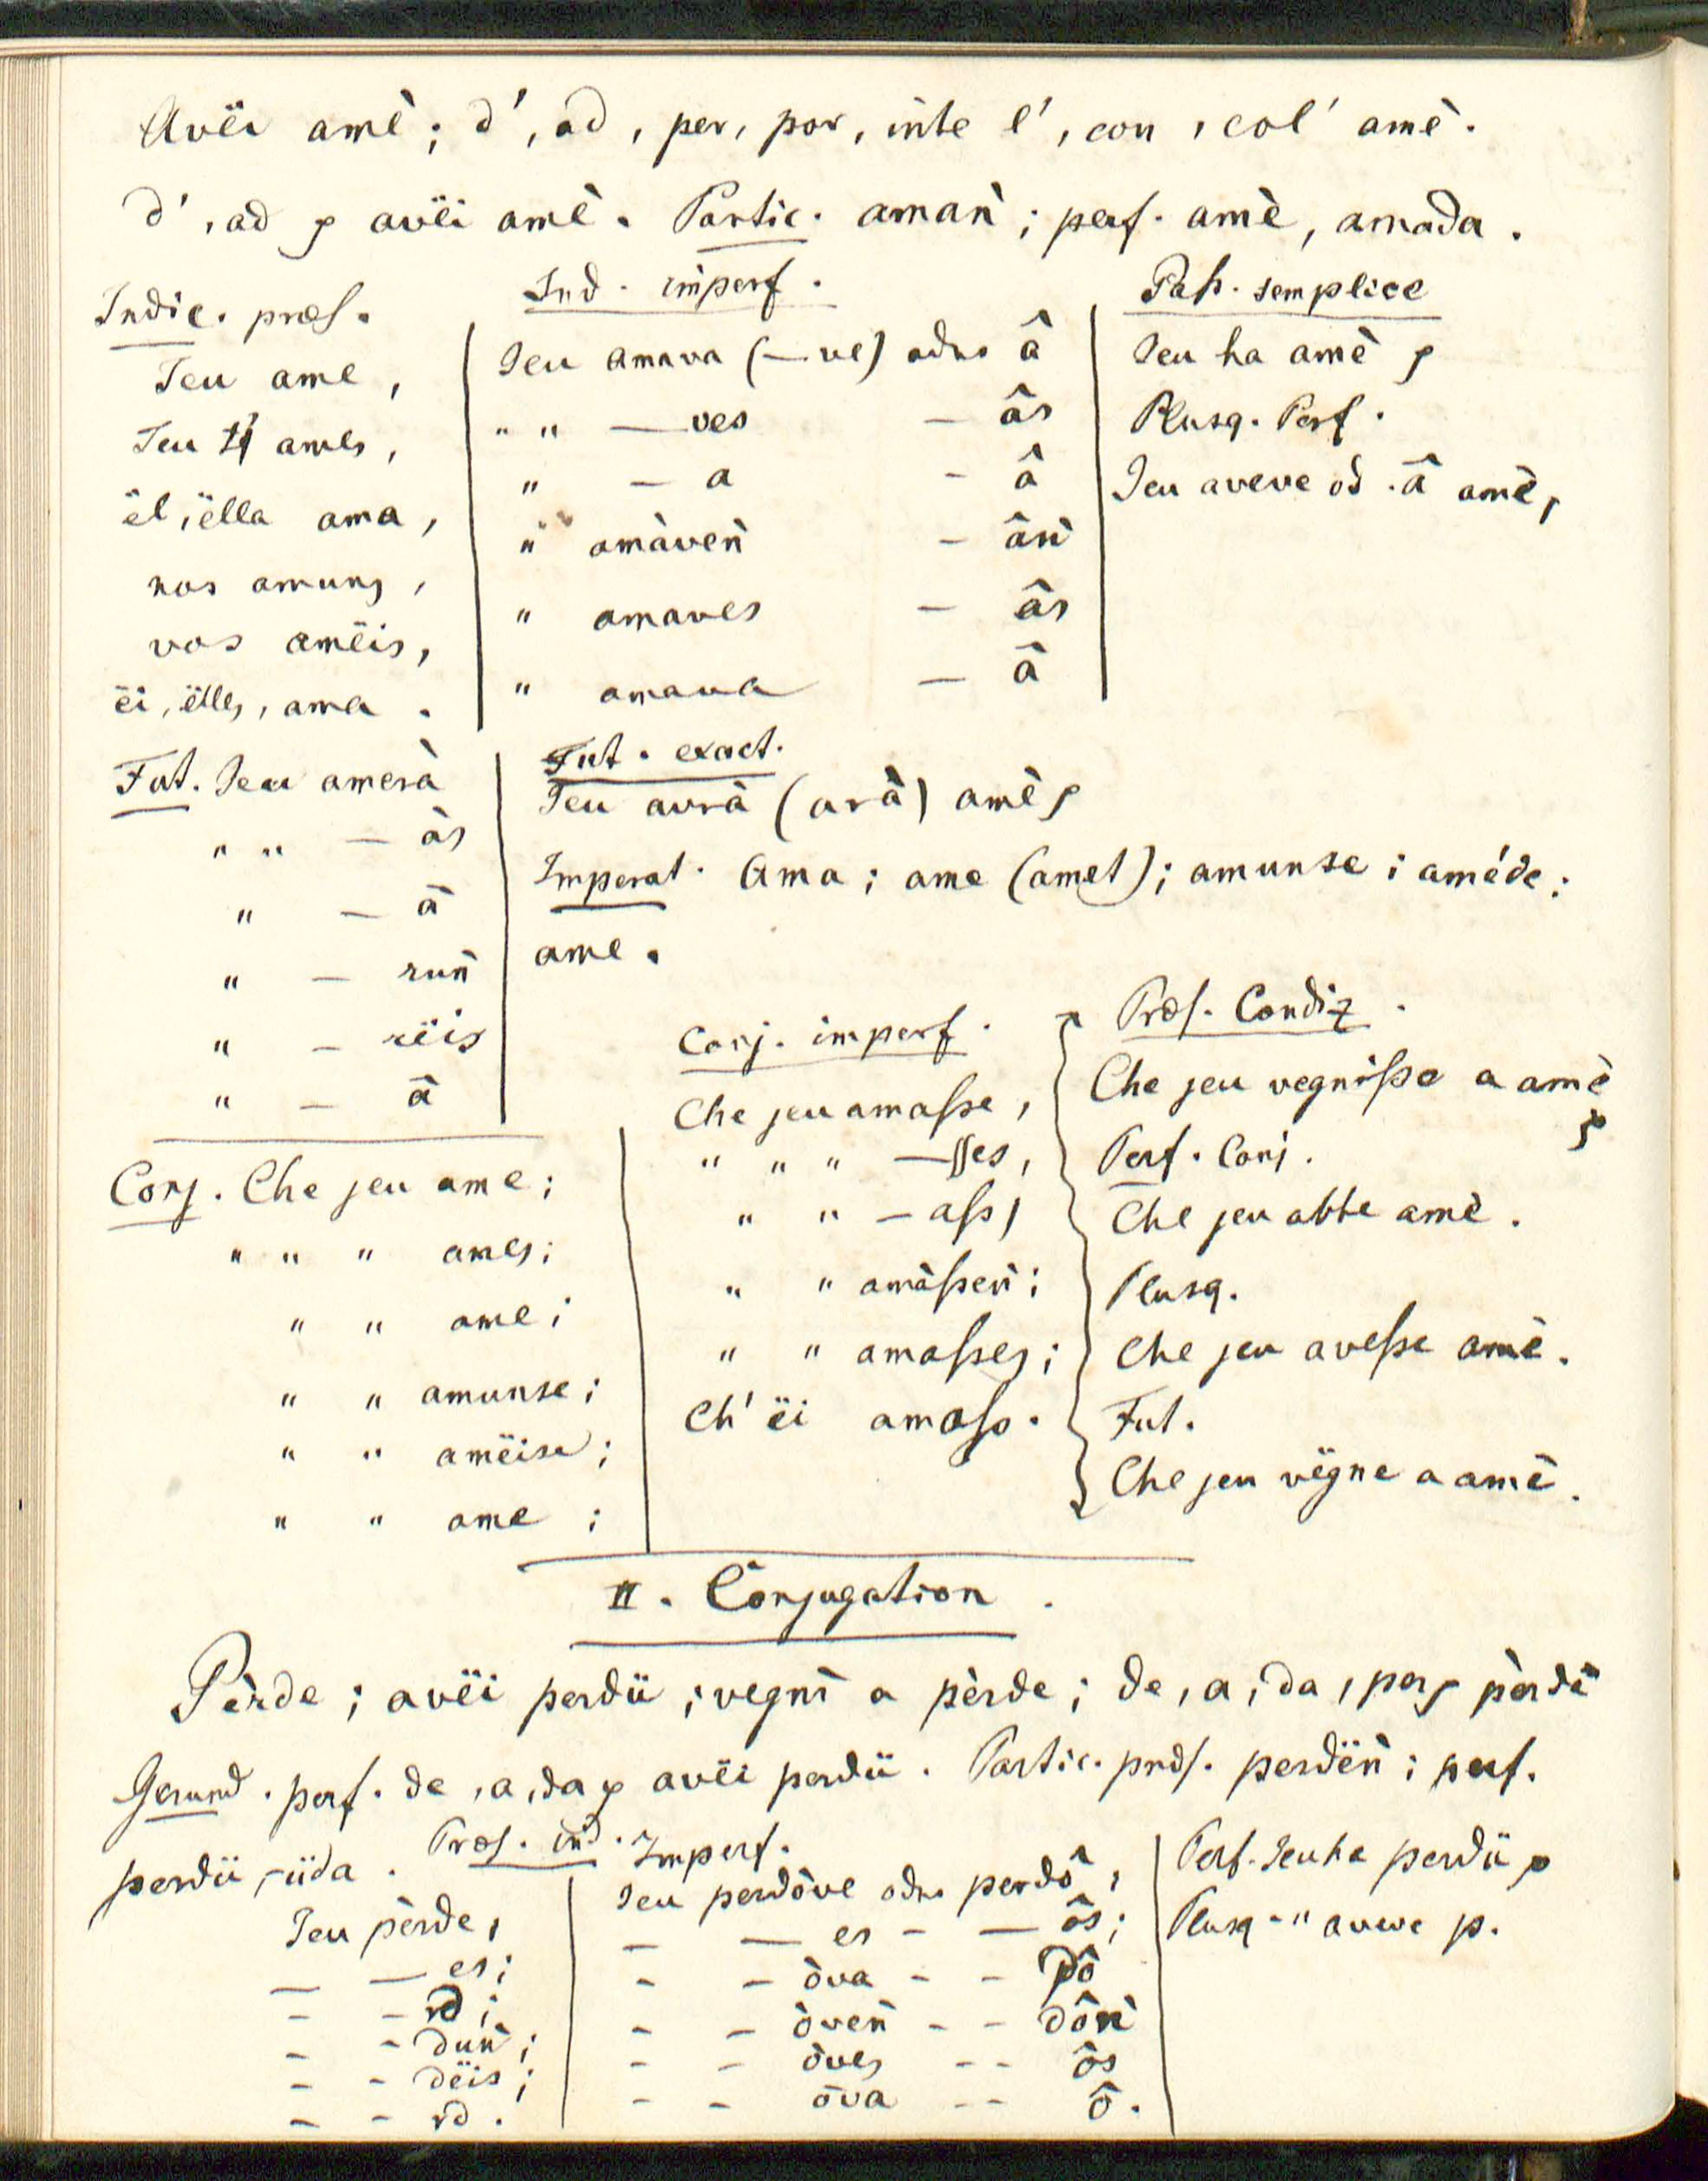 Avëi amè; d', ad, per, por, inte l', con, col' amè.
d', ad p avëi amè. Partic. aman̈; perf. amè, amada.
Indic. præs.
Jeu ame,
Jeu ames,
ël, ëlla ama,
nos amung,
vos amëis,
ëi, ëlles, ama.
Ind. imperf.
Jeu amava (—ve) odro â
" " — ves — âs
" — a — â
" amàven̈ — ân̈
" amaves — âs
" amava — â
Paß. semplice
Jeu ha amè p
Plusq. Perf.
Jeu aveve od. â amè,
Fut. Jeu amerà
" " — às
" — à
" — run̈
" — rëis
" — à
Fut. exact.
Jeu avrà (arà) amè p
Imperat. Ama; ame (amet); amunse; améde;
ame.
Conj. Che jeu ame;
" " " ames;
" " ame;
" " amunse;
" " amëise;
" " ame;
Conj. imperf.
Che jeu amaſse,
" " " —ſſes,
" " — aſs,
" " amàſsen̈;
" " amaſses;
Ch' ëi amaſs.
Præs. Condiz.
Che jeu vegniſse a amè
p
Perf. Conj.
Che jeu abbe amè.
Plusq.
Che jeu aveſse amè.
Fut.
Che jeu vëgne a amè.
II. Conjugation.
Pèrde; avëi perdü; vegnì a pèrde; de, a, da, per p pèrde
Gerund. perf. de, a, da p avëi perdü. Partic. præs. perdën̈; perf.
perdü, -üda.
Præs. ind.
Jeu pèrde,
— — es;
– – rd;
– – dun̈;
– – dëis;
– – rd.
Imperf.
Jeu perdòve odro perdô,
— — es – — ôs;
– – òva – – dô
– – òven̈ – – dôn̈
– – òves – – ôs
– – òva – – ô.
Perf. Jeu ha perdü p
Plusq. " aveve p.